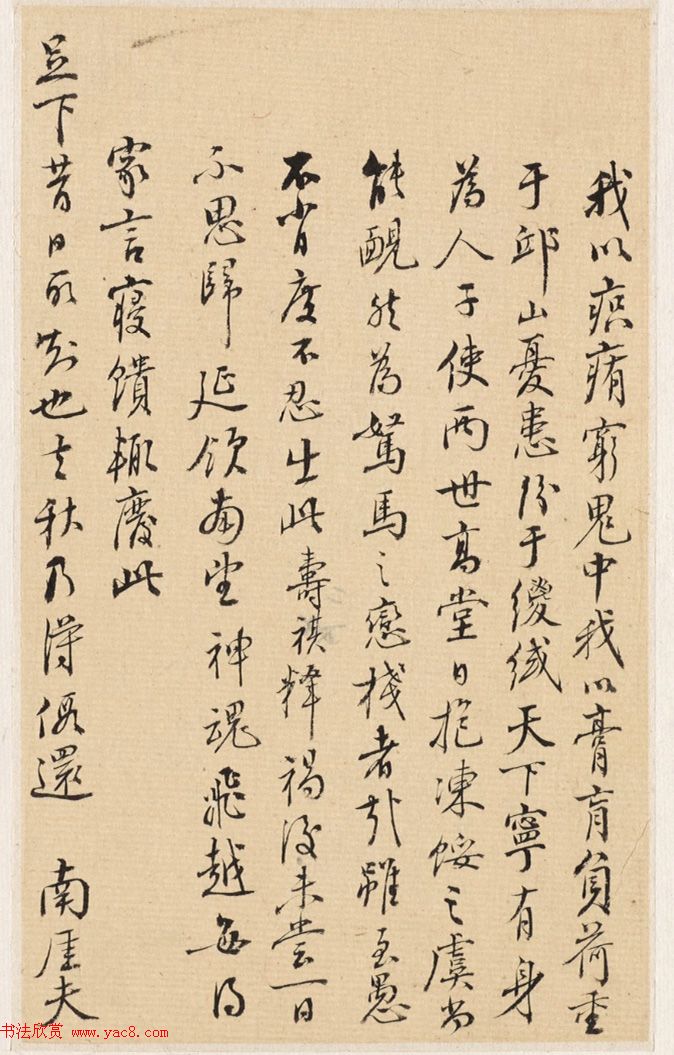 我以痞痏窮鬼中我以膏肓負荷重
于邱山憂患紛于纓絨天下寧有身
為人子使兩世高堂日抱凍餒之虞尚
能靦然為駑馬之戀棧者哉雖至愚
不肖度不忍出此壽祺釋褐後未嘗一日
不思歸延領南望神魂飛越每得
家言寢饋輒廢此
足下昔日所知也去秋乃得假還 南厓夫
书法欣赏 www.yac8.com